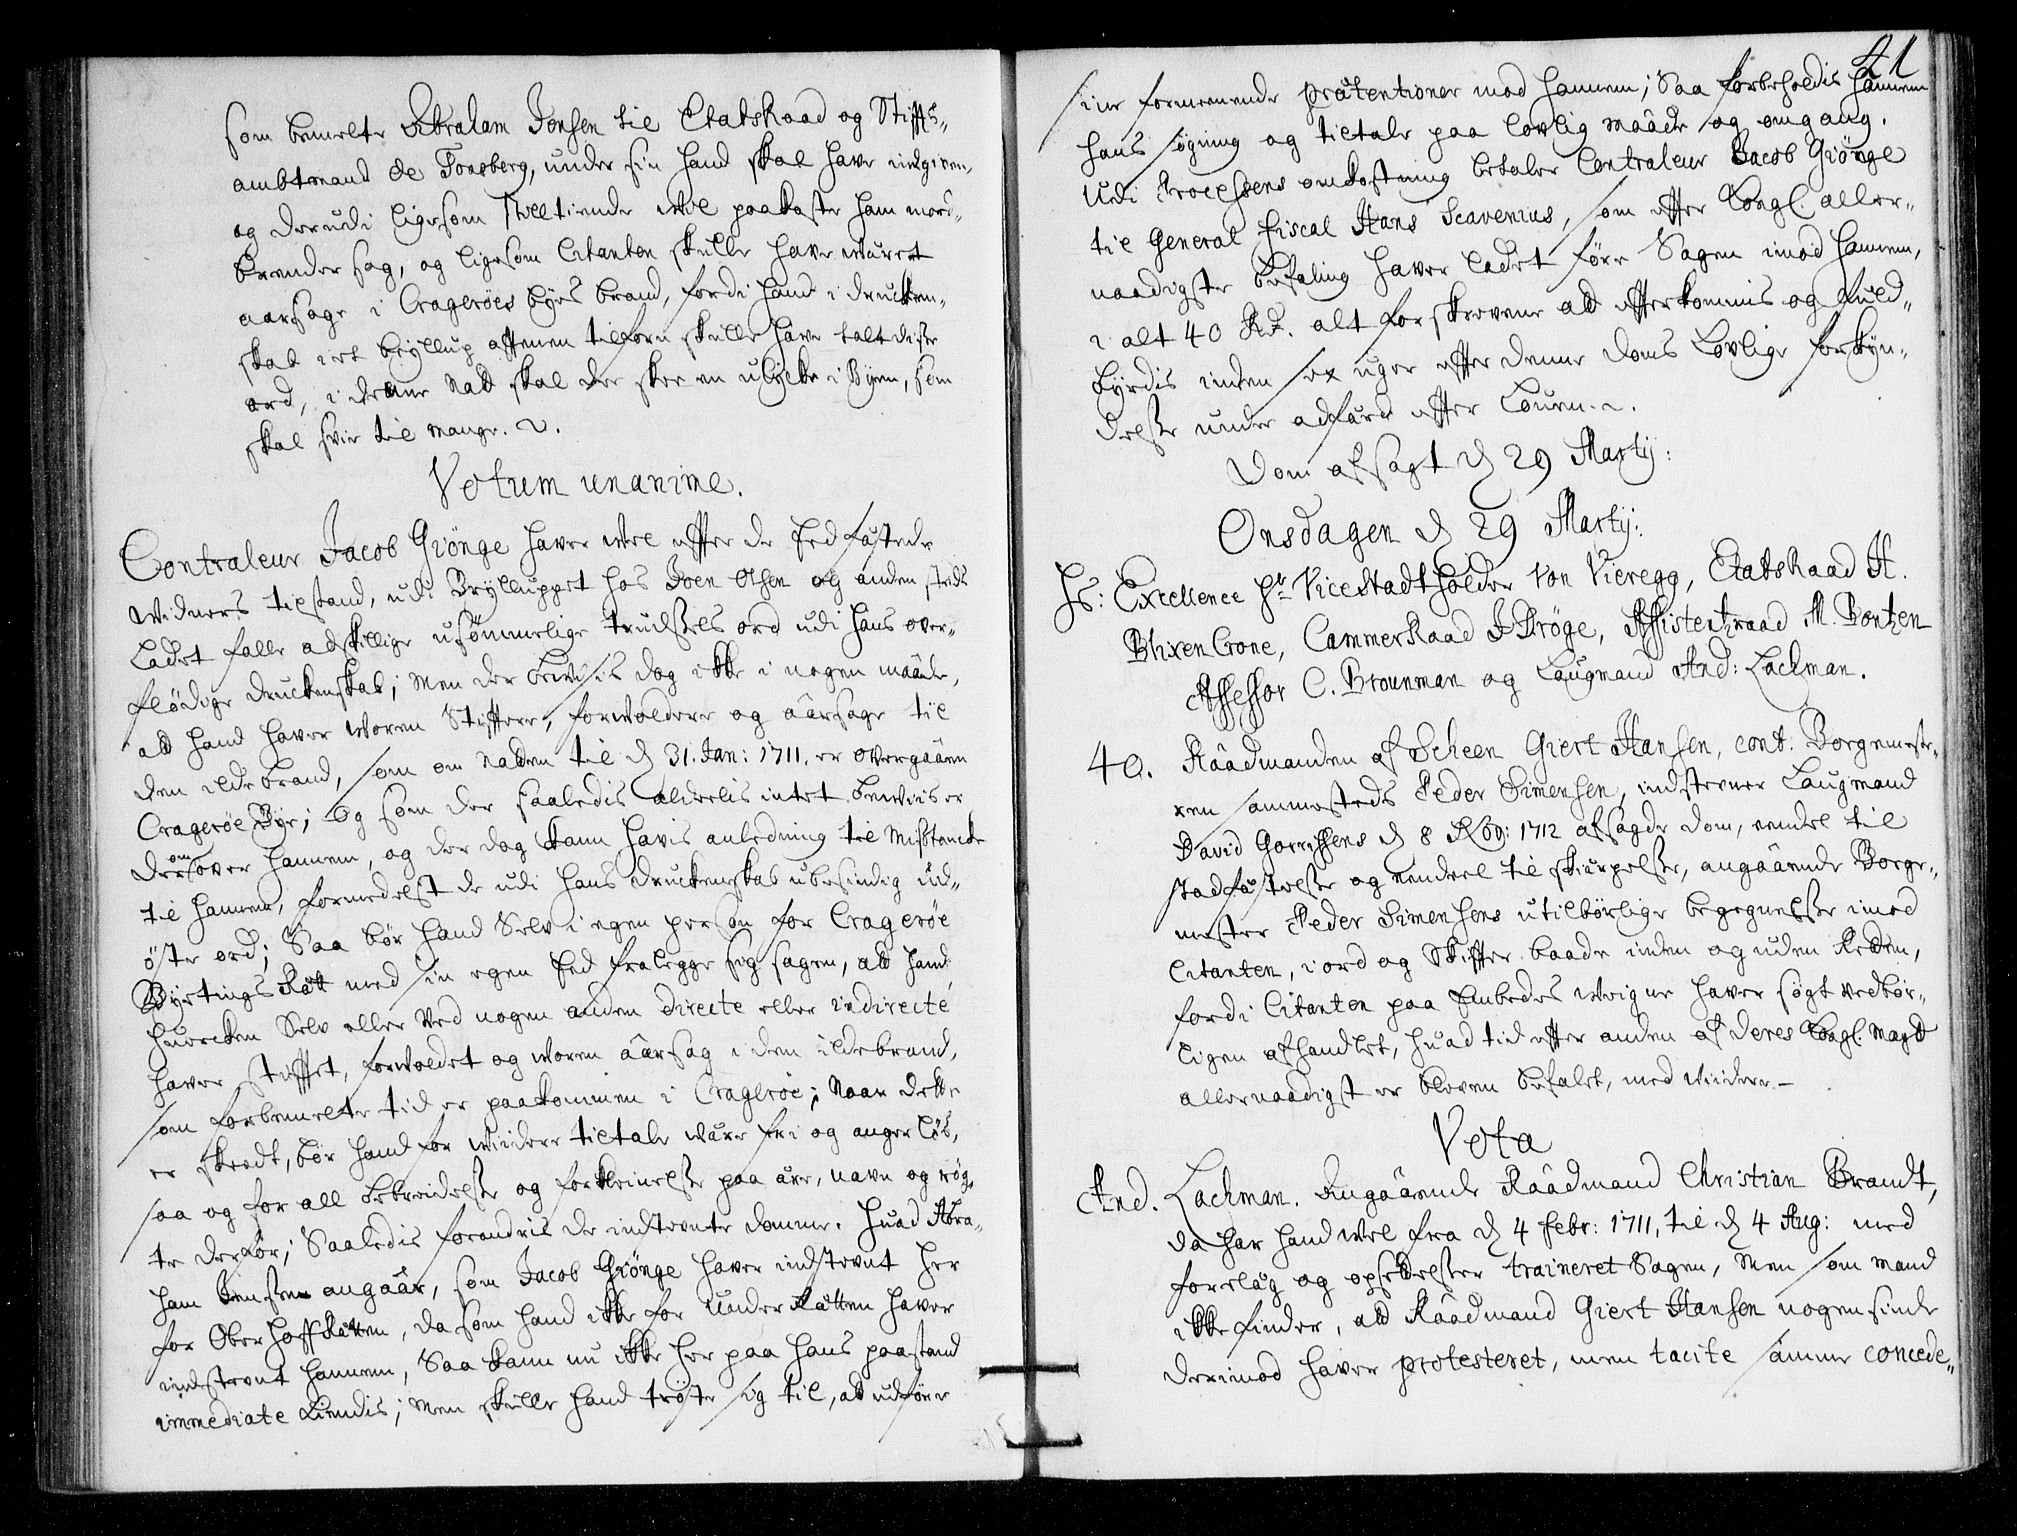 som bemelte Abraham Jonsen til Etatsraad og Stiffts-
ambtmand de Tonsberg, under sin haand skal have indgiven,
og derudi ligesom tveltiende vil paakaste ham mord-
brender sag, og ligesom Citanten skulle have været
aarsage i Cragerøes byes brand, fordi hand i drucken-
skab i et bryllup afftenen tilforn skulle have talt disse
ord, i denne Nat skal der skee en ulycke i Byen, som
skal svie til mange. 2.
Votum unanime.
Contraleur Jacob Giönge haver vel effter de Eedfæstede
Widners tilstand, udi Brylluppet hos Joen Olsen og anden steds
ladet falle adskillige usømmelige trudsels ord udi hans over-
flødige druckenskab; Men der bevises dog icke i nogen maade,
at hand haver voren Stiffter, forvoldere og aarsage til
den ildebrand, som om Natten til d 31. Jan: 1711. er overgaaen
Cragerøe Bye; Og som der saaledis aldeelis intet beviis er
derom over hannem, og der dog kann havis anledning til Mistancke
til hannem, formedelst de udi hans druckenskab ubesindig ud-
øste ord; Saa bør hand Selv i egen person for Cragerøe
Byetings Rætt med sin egen Eed fralegge sig sagen, at hand
huercken Selv eller ved nogen anden directe eller indirecte
haver stifftet, forvoldet og voren aarsag i den ildebrand,
som forbemelte tid er paakommen i Cragerøe; Naar dette
er skeedt, bør hand for videre tiltale være fri og angerløs,
saa og for all bebreidelse og forkleinelse paa ære, navn og røg-
te derfor; Saaledis forandris de indstevnte domme. Huad Abra-
ham Jensen angaar, som Jacob Giönge haver indstevnt her
for OberHoffRætten, da som hand icke for UnderRætten haver
indstevnt hannem, Saa kann nu icke her paa hans paastand
immediate kiendis; Men skulle hand trøste sig til, at udføre
21
sine formeenende prætentioner mod hannem; Saa forbeholdis hannem
hans søgning og tiltale paa lovlig maade og omgang.
Udi Processens omkostning betaler Contraleur Jacob Giönge
til General Fiscal Hans Scavenius, som effter Kongl. aller-
naadigste befaling haver ladet føre Sagen imod hannem,
i alt 40 Rd. alt forskrevne at effterkommis og fuld-
byrdis inden sex uger effter denne doms Lovlige forkyn-
delse under adfærd effter Louen. 2.
Dom afsagt d 29 Martij:
Onsdagen d 29 Martij:
Hs: Excellence Hr ViceStadtholder Von Vieregg, Etatsraad H.
BlixenCrone, CammerRaad J Dröge, Assistentzraad M. Bontzen
Assessor C. Brounman og Laugmand And: Lachman.
40. Raadmanden af Scheen Giert Hansen, cont. Borgemeste-
ren sammesteds Peder Simensen, indstevner Laugmand
David Gorrissens d 8 Nov: 1712 afsagde dom, eendel til
stadfæstelse og eendeel til skiærpelse, angaaende Borge-
mester Peder Simensens utilbørlige begegnelse imod
Citanten, i ord og Skriffter baade inden og uden Retten,
fordi Citanten paa Embedes veigne haver søgt vedbør-
ligen afhandlet, huad tid effter anden af deres Kongl. Mayt
allernaadigst er bleven befalet, med viidere –
Vota
And. Lachman. Angaaende Raadmand Christian Brandt,
da har hand vel fra d 4 Febr: 1711, til d 4 Aug: med
forelæg og opsettelser traineret Sagen, Men som mand
icke finder, at Raadmand Giert Hansen nogensinde
derimod haver protesteret, men tacite samme concede-